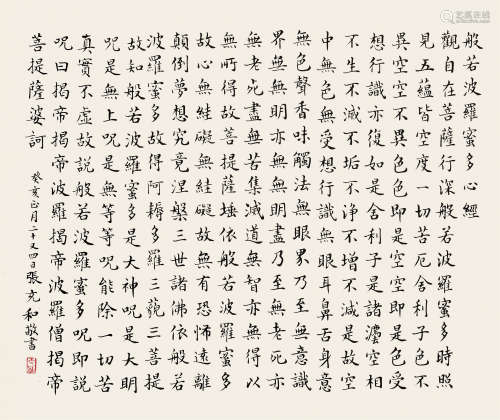 般若波羅蜜多心經
觀自在菩薩行深般若波羅蜜多時照
見五蘊皆空度一切苦厄舍利子色不
異空空不異色色即是空空即是色受
想行識亦復如是舍利子是諸灋空相
不生不滅不垢不淨不增不減是故空
中無色無受想行識無眼耳鼻舌身意
無色聲香味觸法無眼界乃至無意識
界無無明亦無無明盡乃至無老死亦
無老死盡無苦集滅道無智亦無得以
無所得故菩提薩埵依般若波羅蜜多
故心無絓礙無絓礙故無有恐怖遠離
顛倒夢想究竟涅槃三世諸佛依般若
波羅蜜多故得阿耨多羅三藐三菩提
故知般若波羅蜜多是大神呪是大明
呪是無上呪是無等等呪能除一切苦
真實不虛故說般若波羅蜜多呪即說
呪曰揭帝揭帝波羅揭帝波羅僧揭帝
菩提薩婆訶
癸亥正月二十又四日張充和敬書